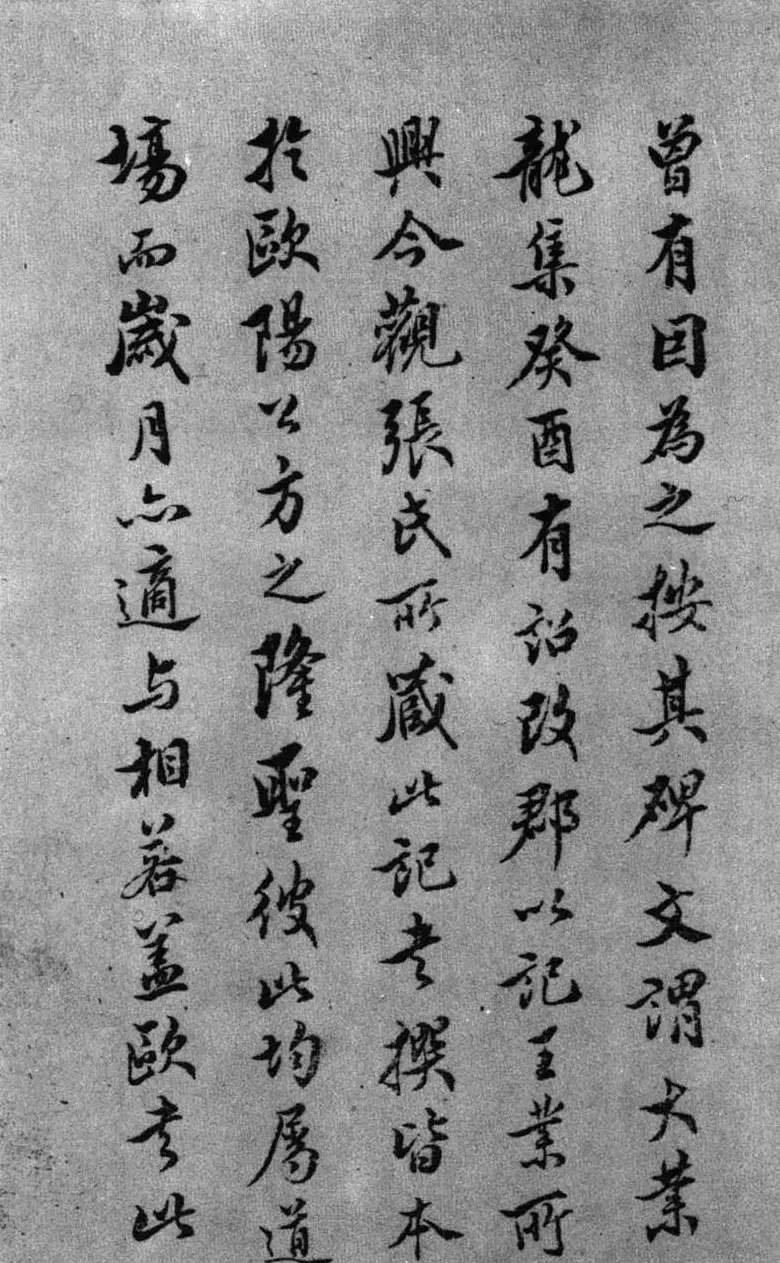 曾有因為之按其碑文謂大業
龍集癸酉有詔改郡以記王業所
興今觀張氏所藏此記考撰皆本
於歐陽公方之隆聖彼此均屬道
場而歲月亦適与相若蓋歐考此